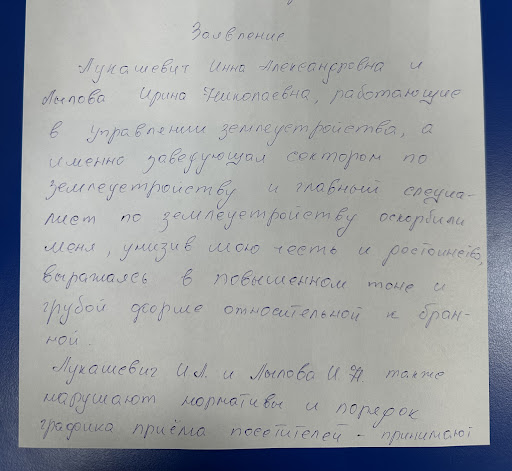 Заявление
Лукашевит Инна Александровна и
Лылова Ирина Николаевна, работающие
в управлении землеустройства, а
именно заведующая сектором по
землеустройству и главный специа-
лист по землеустройству оскорбили
меня, унизив мою честь и достоинство,
выражаясь в повышенном тоне и
грубой форме относительной к бран-
ной.
Лукашевич И.А. и Лылова И.Н. также
нарушают нормативы и порядок
графика приёма посетителей - принимают